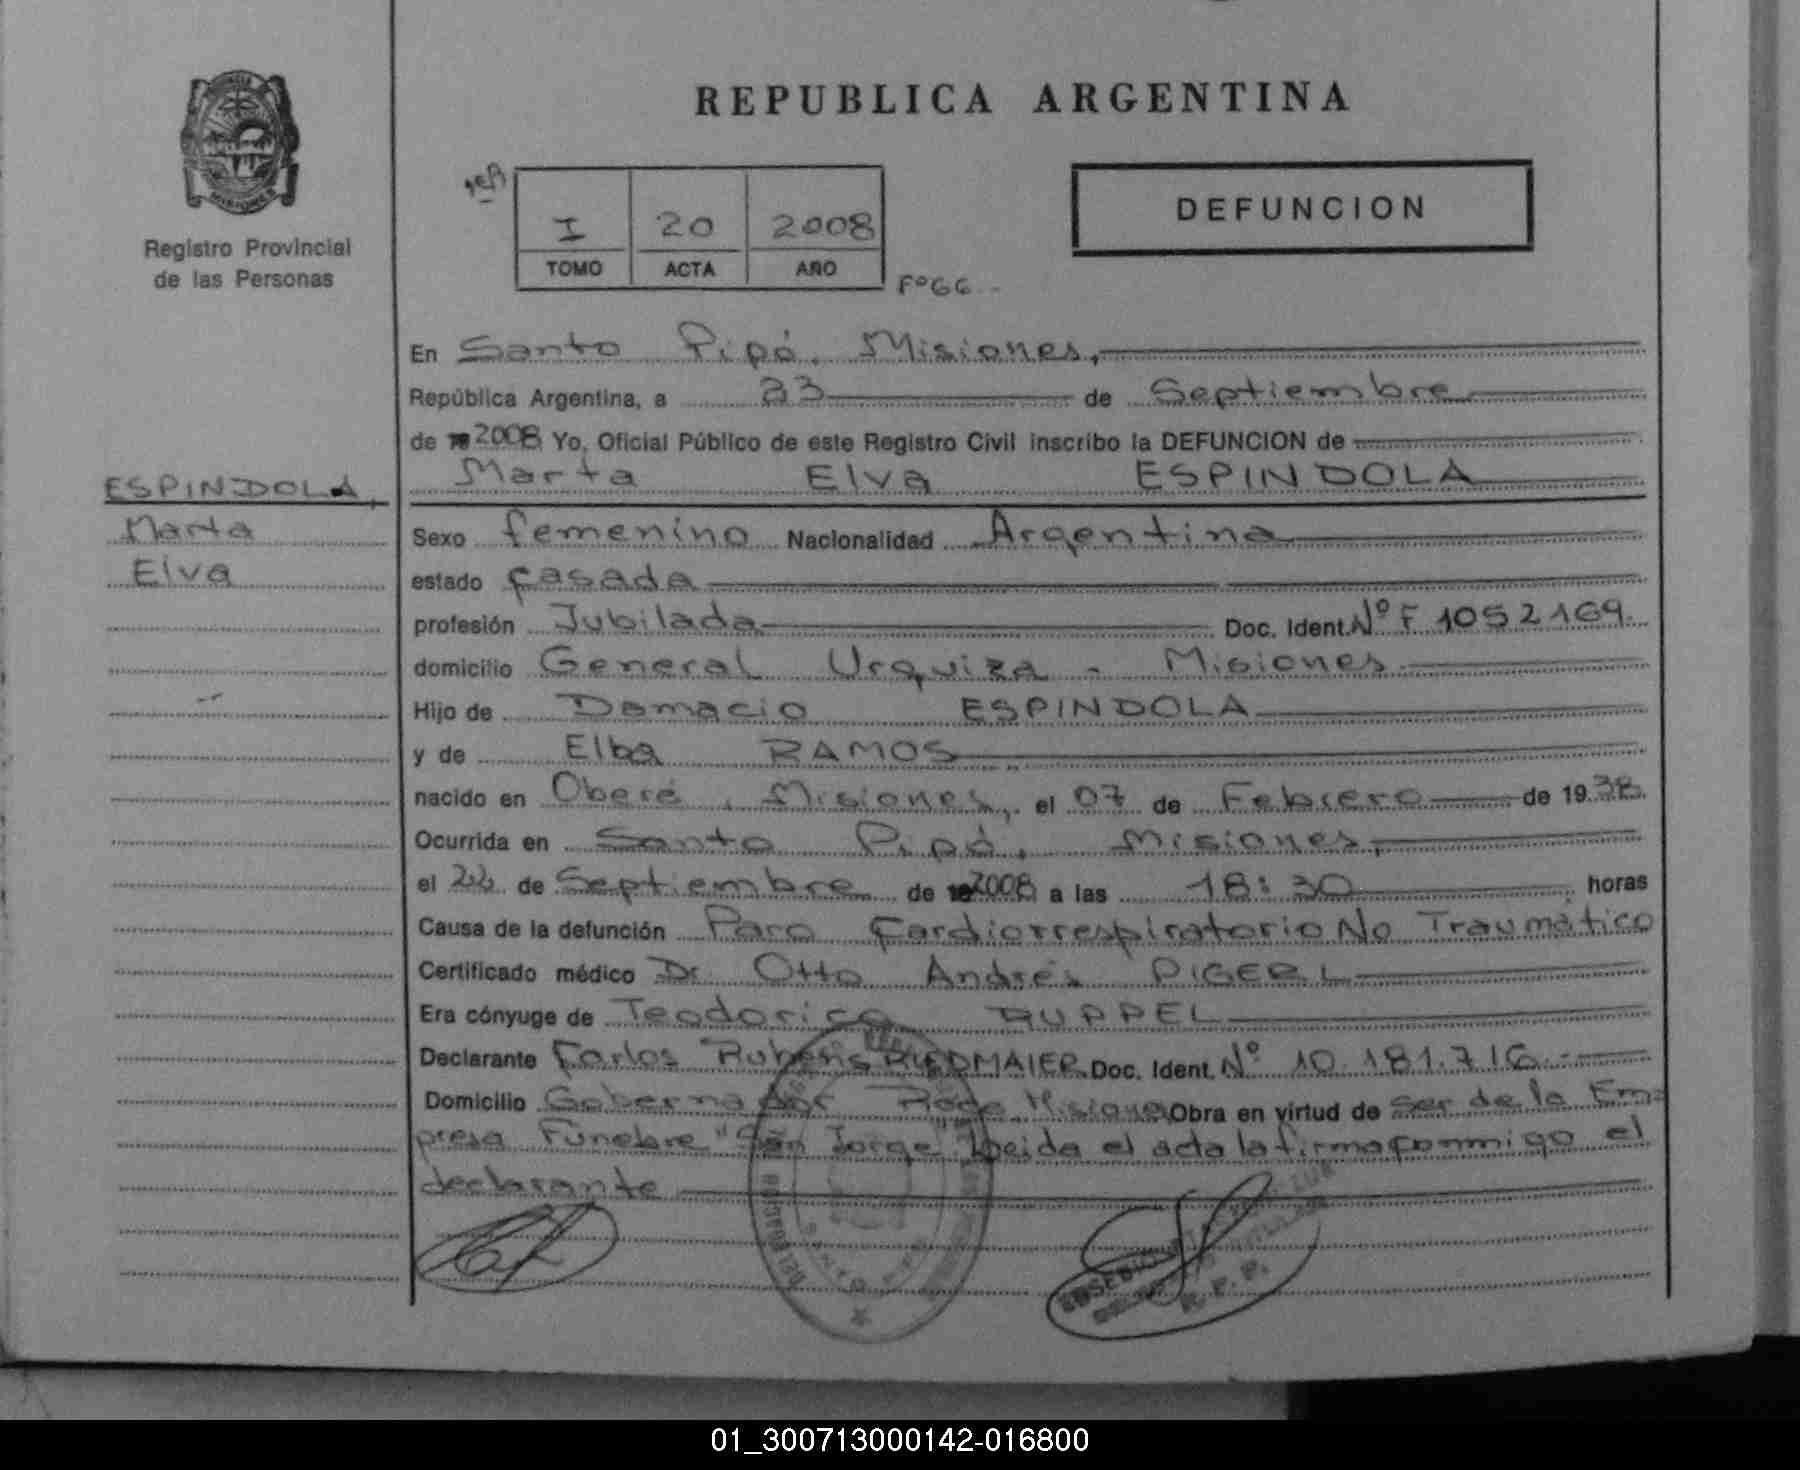 REPUBLICA ARGENTINA
PROVINCIA
MISIONES
Registro Provincial
de las Personas
I 20 2008
TOMO ACTA AÑO
Fº66
DEFUNCION
En Santo Pipó, Misiones,
República Argentina, a 23 de Septiembre
de 2008 Yo, Oficial Público de este Registro Civil inscribo la DEFUNCION de
Marta Elva ESPINDOLA
ESPINDOLA,
Marta
Elva
Sexo femenino Nacionalidad Argentina
estado casada
profesión Jubilada Doc. Ident. Nº F 1052169.
domicilio General Urquiza - Misiones
Hijo de Damacio ESPINDOLA
y de Elba RAMOS
nacido en Oberá, Misiones, el 07 de Febrero de 1938
Ocurrida en Santo Pipó, Misiones,
el 22 de Septiembre de 2008 a las 18:30 horas
Causa de la defunción Paro Cardiorrespiratorio No Traumático
Certificado médico Dr. Otto Andrés PIGERL
Era cónyuge de Teodorico RUPPEL
Declarante Carlos Rubens RIEDMAIER Doc. Ident. Nº 10.181.716.-
Domicilio Gobernador Roca Misiones Obra en virtud de ser de la Em=
presa Funebre "San Jorge" Leida el acta la firma conmigo el
declarante
SANTO PIPO
R. P. P.
01_300713000142-016800